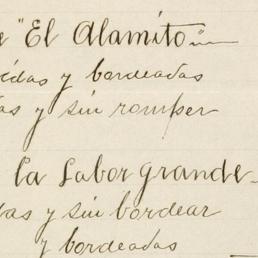 "El Alamito"
y bordeadas
y sin romper
la Labor grande
y sin bordear
y bordeadas